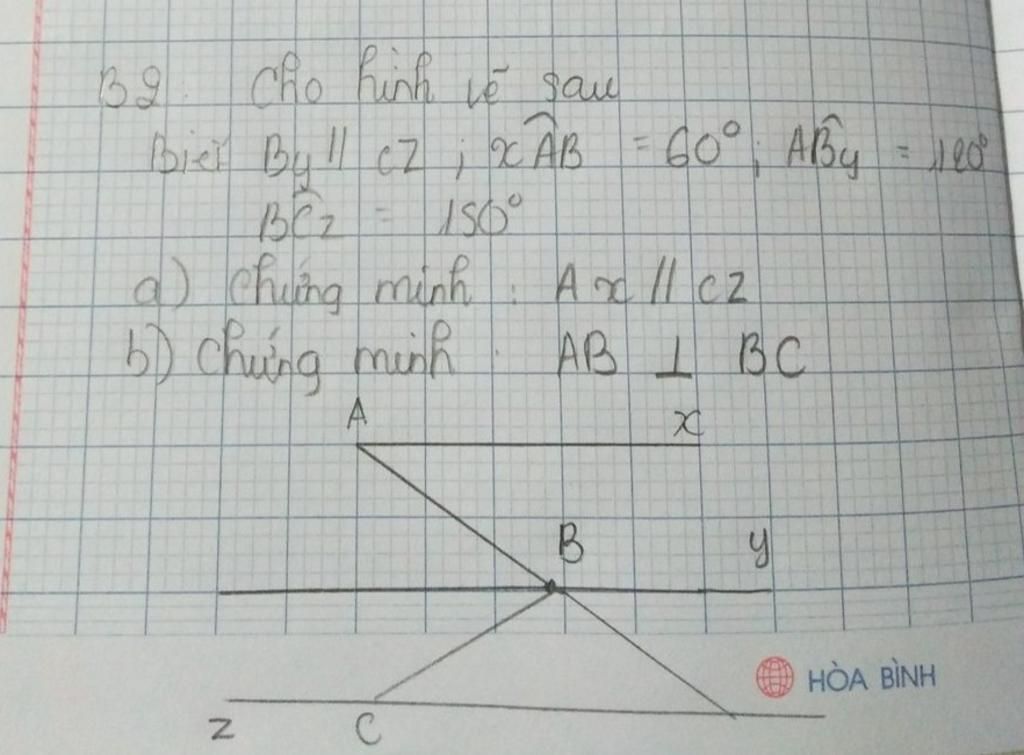 B9. Cho hình vẽ sau
Biết By // Cz ; xÂB = 60° ; AB̂y = 120°
BĈz = 150°
a) Chứng minh : Ax // Cz
b) Chứng minh : AB ⊥ BC
A x
B y
HÒA BÌNH
z C